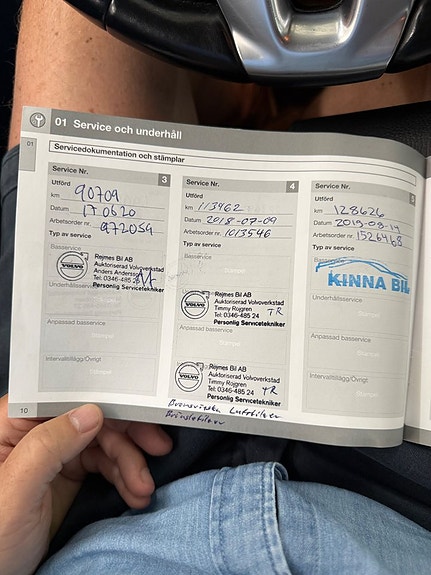 01 Service och underhåll
01
Servicedokumentation och stämplar
Service Nr. 3
Utförd
km 90709
Datum 170620
Arbetsorder nr. 972059
Typ av service
Basservice
VOLVO
Rejmes Bil AB
Auktoriserad Volvoverkstad
Anders Andersson
Tel: 0346-485 24
Personlig Servicetekniker
Underhållsservice
Stämpel
Anpassad basservice
Stämpel
Intervalltillägg/Övrigt
Stämpel
10
Service Nr. 4
Utförd
km 113462
Datum 2018-07-09
Arbetsorder nr. 1013546
Typ av service
Basservice
Stämpel
VOLVO
Rejmes Bil AB
Auktoriserad Volvoverkstad
Timmy Rojgren
Tel: 0346-485 24 TR
Personlig Servicetekniker
Anpassad basservice
Stämpel
VOLVO
Rejmes Bil AB
Auktoriserad Volvoverkstad
Timmy Rojgren
Tel: 0346-485 24 TR
Personlig Servicetekniker
Bromsvätska Luftfilter
Bränslefilter
Service Nr. 5
Utförd
km 128626
Datum 2019-08-14
Arbetsorder nr. 1526468
Typ av service
Basservice
KINNA BIL
Underhållsservice
Stämpel
Anpassad basservice
Stämpel
Intervalltillägg/Övrigt
Stämpel